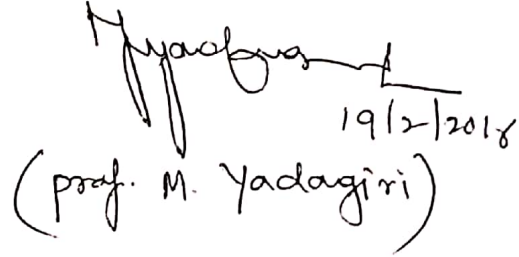 19/2/2018
(prof. M. Yadagiri)